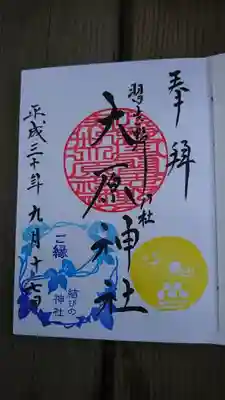 奉拝
習志野郷社
大原神社
平成三十年九月十七日
ご縁
結びの
神社